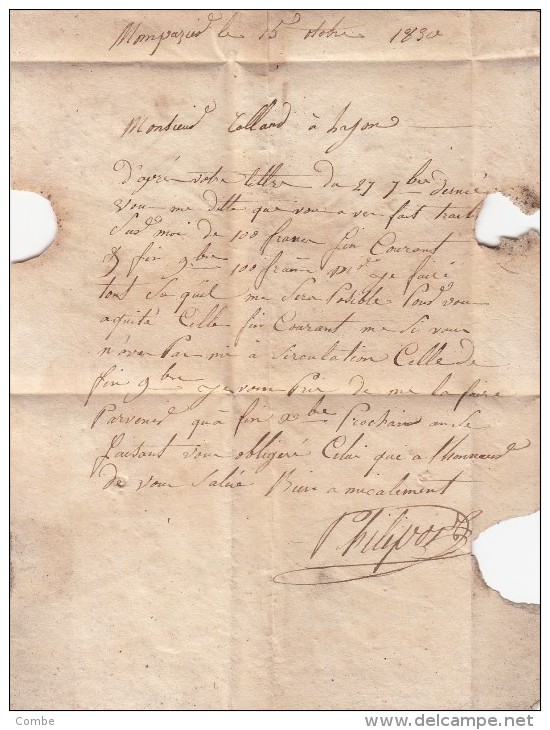 Monpazier le 15 8bre 1830
Monsieur Colland à
d'apré votre lettre du 27 7bre dernié
vou me ditte que vou avez fait traite
Sur moi de 100 franc fin Courant
& fin 9bre 100 franc mr je fairé
tout Se quil me Sera Posible Pour vou
aquité Celle fin Courant me Si vous
n'avez Pas mi à Sirculation Celle de
fin 9bre je vous Prie de me la faire
Parvenir qu'à fin Xbre Prochain an Se
faisant vous obligeré Celui que a l'honneur
de vous Salué Bien amicalement
Philipon
Combe
www.delcampe.net